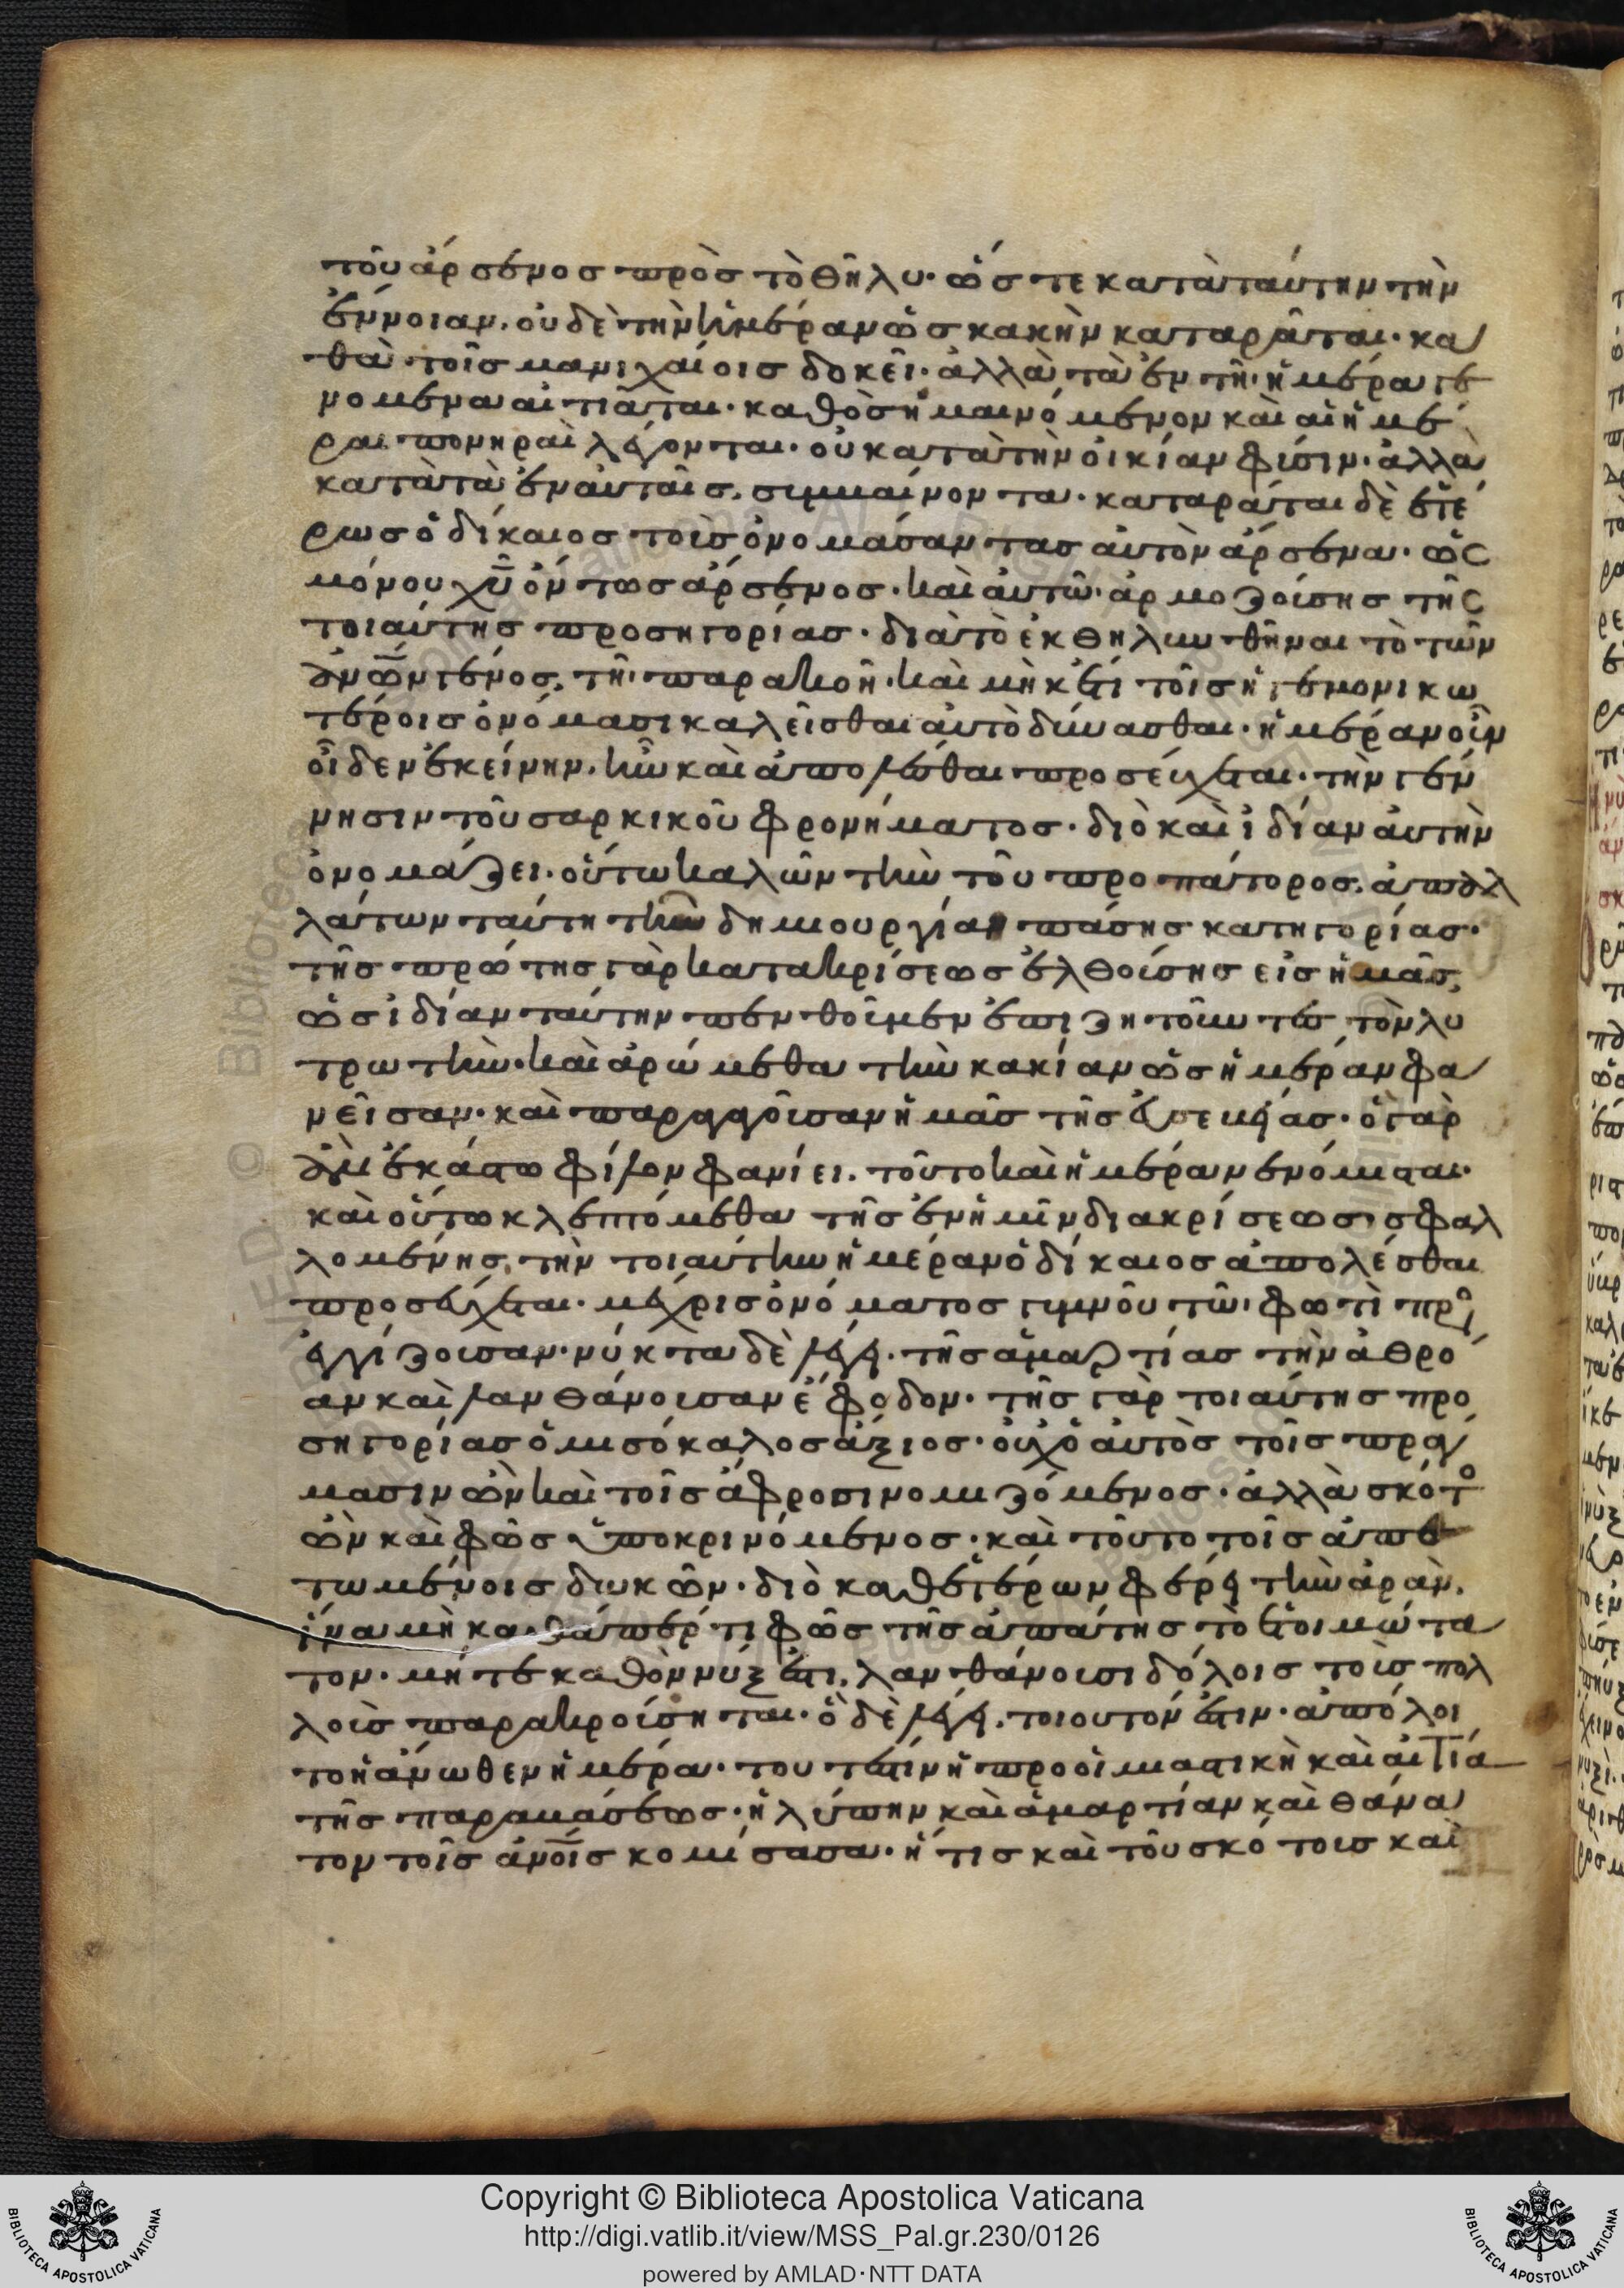 τοῦ ἄρσενος πρὸς τὸ θῆλυ· ὥστε κατὰ ταύτην τὴν
ἔννοιαν, οὐδὲ τὴν ἡμέραν ὡς κακὴν καταρᾶται· κα
θὰ τοῖς μανιχαίοις δοκεῖ· ἀλλὰ τὰ ἐν τῆ ἡμέρα γε
νόμενα αἰτιᾶται· καθὸ σημαινόμενον καὶ αἱ ἡμέ
ραι πονηραὶ λέγονται· οὐ κατὰ τὴν οἰκίαν φύσιν· ἀλλὰ
κατὰ τὰ ἐν αὐταῖς συμβαίνοντα· καταρᾶται δὲ ἑτέ
ρως ὁ δίκαιος τοὺς ὀνομάσαντας αὐτὸν ἄρσενα· ὡς
μόνου χυ ὄντως ἄρσενος· καὶ αὐτῶ ἁρμοζούσης τῆς
τοιαύτης προσηγορίας· διὰ τὸ ἐκθηλυνθῆναι τὸ τῶν
ἀνων γένος τῆ παρακοῆ· καὶ μηκέτι τοῖς ἡγεμονικω
τέροις ὀνόμασι καλεῖσθαι αὐτὸ δύνασθαι· ἡμέραν οὖν
οἶδεν ἐκείνην, ἣν καὶ ἀπολέσθαι προσεύχεται· τὴν γέν
νησιν τοῦ σαρκικοῦ φρονήματος· διὸ καὶ ἰδίαν αὐτὴν
ὀνομάζει· οὕτω καλῶν τὴν τοῦ προπάτορος, ἀπαλ
λάττων ταύτη τὴν δημιουργίαν πάσης κατηγορίας·
τῆς πρώτης γὰρ κατακρίσεως ἐλθούσης εἰς ἡμᾶς,
ὡς ἰδίαν ταύτην πενθοῦμεν ἐπιζητοῦντες τὸν λυ
τρωτὴν· καὶ ἀρώμεθα τὴν κακίαν ὡς ἡμέραν φα
νεῖσαν· καὶ παραγαγοῦσαν ἡμᾶς τῆς εὐσεβείας· ὃ γὰρ
ἂν ἑκάστω φίλον φανείη, τοῦτο καὶ ἡμέρα νενόμισται·
καὶ οὕτω κλεπτόμεθα τῆς ἐν ἡμῖν διακρίσεως σφαλ
λομένης, τὴν τοιαύτην ἡμέραν ὁ δίκαιος ἀπολέσθαι
προσεύχεται· μέχρις ὀνόματος γυμνοῦ τῶ φωτὶ προς
εγγίζουσαν· νύκτα δὲ λέγει τῆς ἁμαρτίας τὴν ἀθρό
αν καὶ λανθάνουσαν ἔφοδον· τῆς γὰρ τοιαύτης προ
σηγορίας ὁ μισόκαλος ἄξιος· οὐχ ὃ αὐτὸς τοῖς πράγ
μασιν ὢν καὶ τοῖς ἄφροσι νομιζόμενος· ἀλλὰ σκότος
ὢν καὶ φῶς ὑποκρινόμενος· καὶ τοῦτο τοῖς ἀπατω
μένοις δοκῶν· διὸ καθ' ἑτέρων φέρει τὴν ἀρὰν,
ἵνα μὴ καθάπερ τι φῶς τῆς ἀπάτης τὸ ἑτοιμώτα
τον· μήτε καθὸ νύξ ἐστι, λανθάνουσι δόλοις τοὺς πολ
λοὺς παρακρούσηται· ὃ δὲ λέγει τοιοῦτόν ἐστιν· ἀπόλοι
το ἡ ἄνωθεν ἡμέρα· τουτέστιν ἡ προοιμιαστικὴ καὶ αἰτία
τῆς παραβάσεως· ἡ λύπην καὶ ἁμαρτίαν καὶ θάνα
τον τοῖς ἀνοις κομίσασα· ἥτις καὶ τοῦ σκότους καὶ
Copyright © Biblioteca Apostolica Vaticana
http://digi.vatlib.it/view/MSS_Pal.gr.230/0126
powered by AMLAD·NTT DATA
BIBLIOTECA APOSTOLICA VATICANA
BIBLIOTECA APOSTOLICA VATICANA